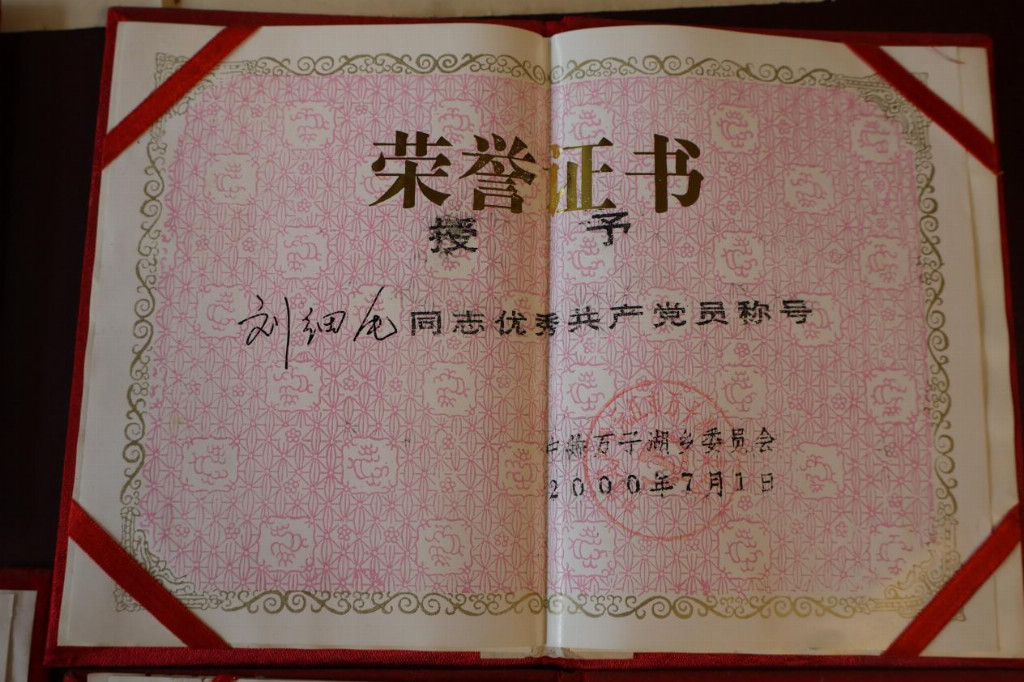 荣誉证书
授予
刘细毛同志优秀共产党员称号
中共万子湖乡委员会
2000年7月1日